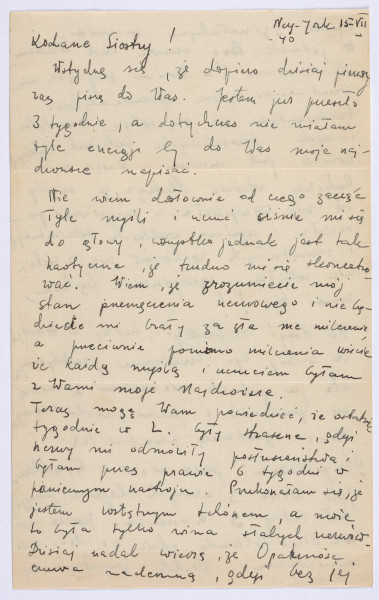 New-York 15 VII
- 40
Kochane Siostry !
Wstydzę się, że dopiero dzisiaj pierwszy
raz piszę do Was. Jestem już przeszło
3 tygodnie, a dotychczas nie miałam
tyle energji by do Was moje naj-
droższe napisać.
Nie wiem dosłownie od czego zacząć
Tyle myśli i uczuć ciśnie mi się
do głowy, wszystko jednak jest tak
chaotyczne, że trudno mi się skoncentro
wać. Wiem, że zrozumiecie mój
stan przemęczenia nerwowego i nie bę-
dziecie mi brały za złe me milczenie
a przeciwnie pomimo milczenia wiecie
że każdą myślą i uczuciem byłam
z Wami moje Najdroższe.
Teraz mogę Wam powiedzieć, że ostatnie
tygodnie w L. były straszne, gdyż
nerwy mi odmówiły posłuszeństwa i
byłam przez prawie 6 tygodni w
panicznym nastroju. Przekonałam się, że
jestem wstrętnym tchórzem, a może
to była tylko wina słabych nerwów.
Dzisiaj nadal wierzę, że Opatrzność
czuwa nademną, gdyż bez jej